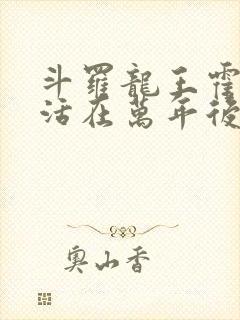 斗羅龍王霍
活在萬年後
奧山香